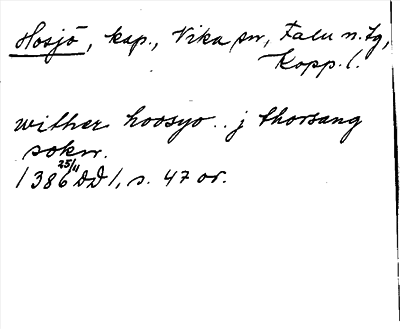 Hosjö, kap., Vika sn, Falu n. tg,
Kopp. l.
wither hoosyo .. j thorsang
sokn.
1386 25/11 DD 1, s. 47 or.